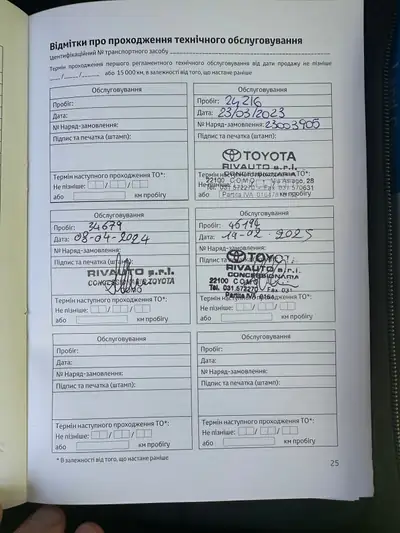 Відмітки про проходження технічного обслуговування
Ідентифікаційний № транспортного засобу
Термін проходження першого регламентного технічного обслуговування від дати продажу не пізніше
__/__/____ або 15 000 км, в залежності від того, що настане раніше
Обслуговування
Пробіг:
Дата:
№ Наряд-замовлення:
Підпис та печатка (штамп):
Термін наступного проходження ТО*:
Не пізніше: / /
або км пробігу
Обслуговування
Пробіг: 24216
Дата: 23/03/2023
№ Наряд-замовлення: 23003905
Підпис та печатка (штамп):
TOYOTA
RIVAUTO s.r.l.
CONCESSIONARIA
22100 COMO - Via Asiago, 28
Tel. 031.572270 - Fax 031.570631
Partita IVA
або км пробігу
Обслуговування
Пробіг: 34679
Дата: 08-04-2024
Підпис та печатка (штамп):
RIVAUTO s.r.l.
CONCESSIONARIA TOYOTA
Термін наступного проходження ТО*:
Не пізніше: / /
або км пробігу
Обслуговування
Пробіг: 46194
Дата: 19-02-2025
Підпис та печатка (штамп):
TOYOTA
RIVAUTO s.r.l.
CONCESSIONARIA
22100 COMO
Tel. 031.572270 Fax 031
Partita IVA
Не пізніше: / /
або км пробігу
Обслуговування
Пробіг:
Дата:
№ Наряд-замовлення:
Підпис та печатка (штамп):
Термін наступного проходження ТО*:
Не пізніше: / /
або км пробігу
Обслуговування
Пробіг:
Дата:
№ Наряд-замовлення:
Підпис та печатка (штамп):
Термін наступного проходження ТО*:
Не пізніше: / /
або км пробігу
* В залежності від того, що настане раніше
25